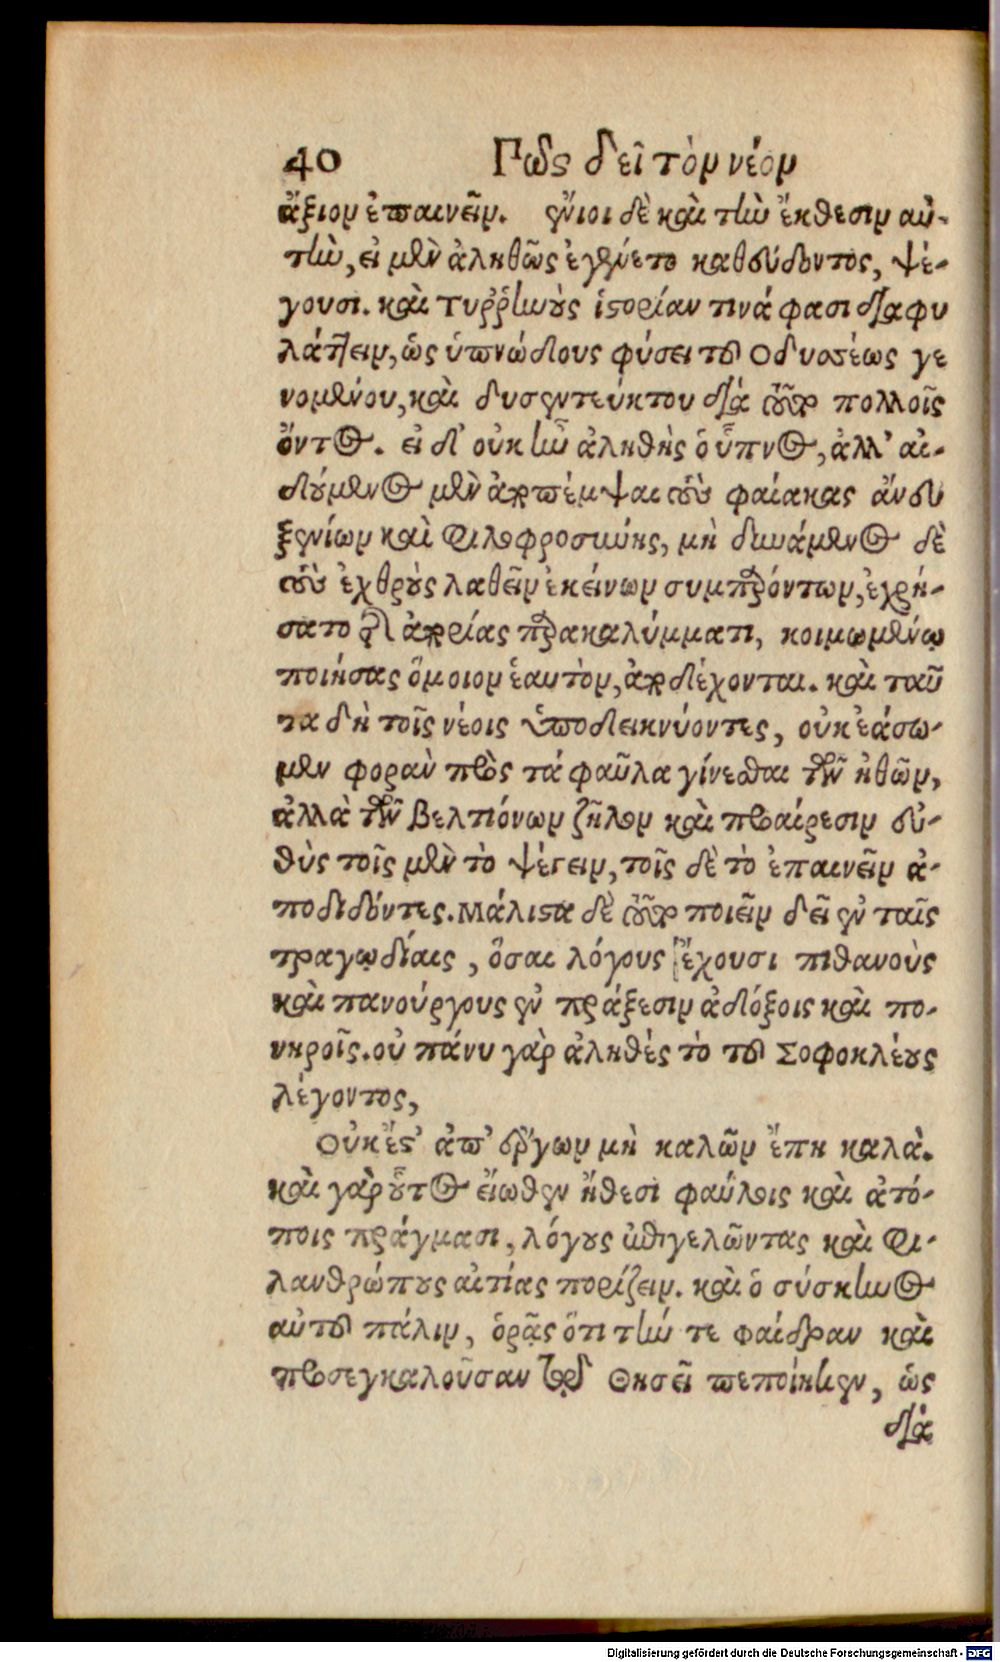 40 Πῶς δεῖ τὸν νέον
ἄξιον ἐπαινεῖν. ἔνιοι δὲ καὶ τὴν ἔκθεσιν αὐ-
τὴν, εἰ μὲν ἀληθῶς ἐγένετο καθεύδοντος, ψέ-
γουσι. καὶ Τυῤῥηνοὺς ἱστορίαν τινά φασι διαφυ
λάττειν, ὡς ὑπνώδους φύσει τοῦ Ὀδυσσέως γε
νομένου, καὶ δυσεντεύκτου διὰ τοῦτο πολλοῖς
ὄντος. εἰ δ' οὐκ ἦν ἀληθὴς ὁ ὕπνος, ἀλλ' αἰ-
δούμενος μὲν ἀποπέμψαι τοὺς φαίακας ἄνευ
ξενίων καὶ φιλοφροσύνης, μὴ δυνάμενος δὲ
τοὺς ἐχθροὺς λαθεῖν ἐκείνων συμπαρόντων, ἐχρή-
σατο τῆς ἀπορίας παρακαλύμματι, κοιμωμένῳ
ποιήσας ὅμοιον ἑαυτὸν, ἀποδέχονται. καὶ ταῦ
τα δὴ τοῖς νέοις ὑποδεικνύοντες, οὐκ ἐάσω-
μεν φορὰν πρὸς τὰ φαῦλα γίνεσθαι τῶν ἠθῶν,
ἀλλὰ τῶν βελτιόνων ζῆλον καὶ προαίρεσιν εὐ-
θὺς τοῖς μὲν τὸ ψέγειν, τοῖς δὲ τὸ ἐπαινεῖν ἀ-
ποδιδόντες. Μάλιστα δὲ τοῦτο ποιεῖν δεῖ ἐν ταῖς
τραγῳδίαις, ὅσαι λόγους ἔχουσι πιθανοὺς
καὶ πανούργους ἐν πράξεσιν ἀδόξοις καὶ πο-
νηροῖς. οὐ πάνυ γὰρ ἀληθές τὸ τοῦ Σοφοκλέους
λέγοντος,
Οὐκ ἔστ' ἀπ' ἔργων μὴ καλῶν ἔπη καλά.
καὶ γὰρ οὗτος εἴωθεν ἤθεσι φαύλοις καὶ ἀτό-
ποις πράγμασι, λόγους ἐπιγελῶντας καὶ φι-
λανθρώπους αἰτίας πορίζειν. καὶ ὁ σύσκηνος
αὐτοῦ πάλιν, ὁρᾷς ὅτι τήν τε φαίδραν καὶ
προσεγκαλοῦσαν τῷ Θησεῖ πεποίηκεν, ὡς
διὰ
Digitalisierung gefördert durch die Deutsche Forschungsgemeinschaft - DFG